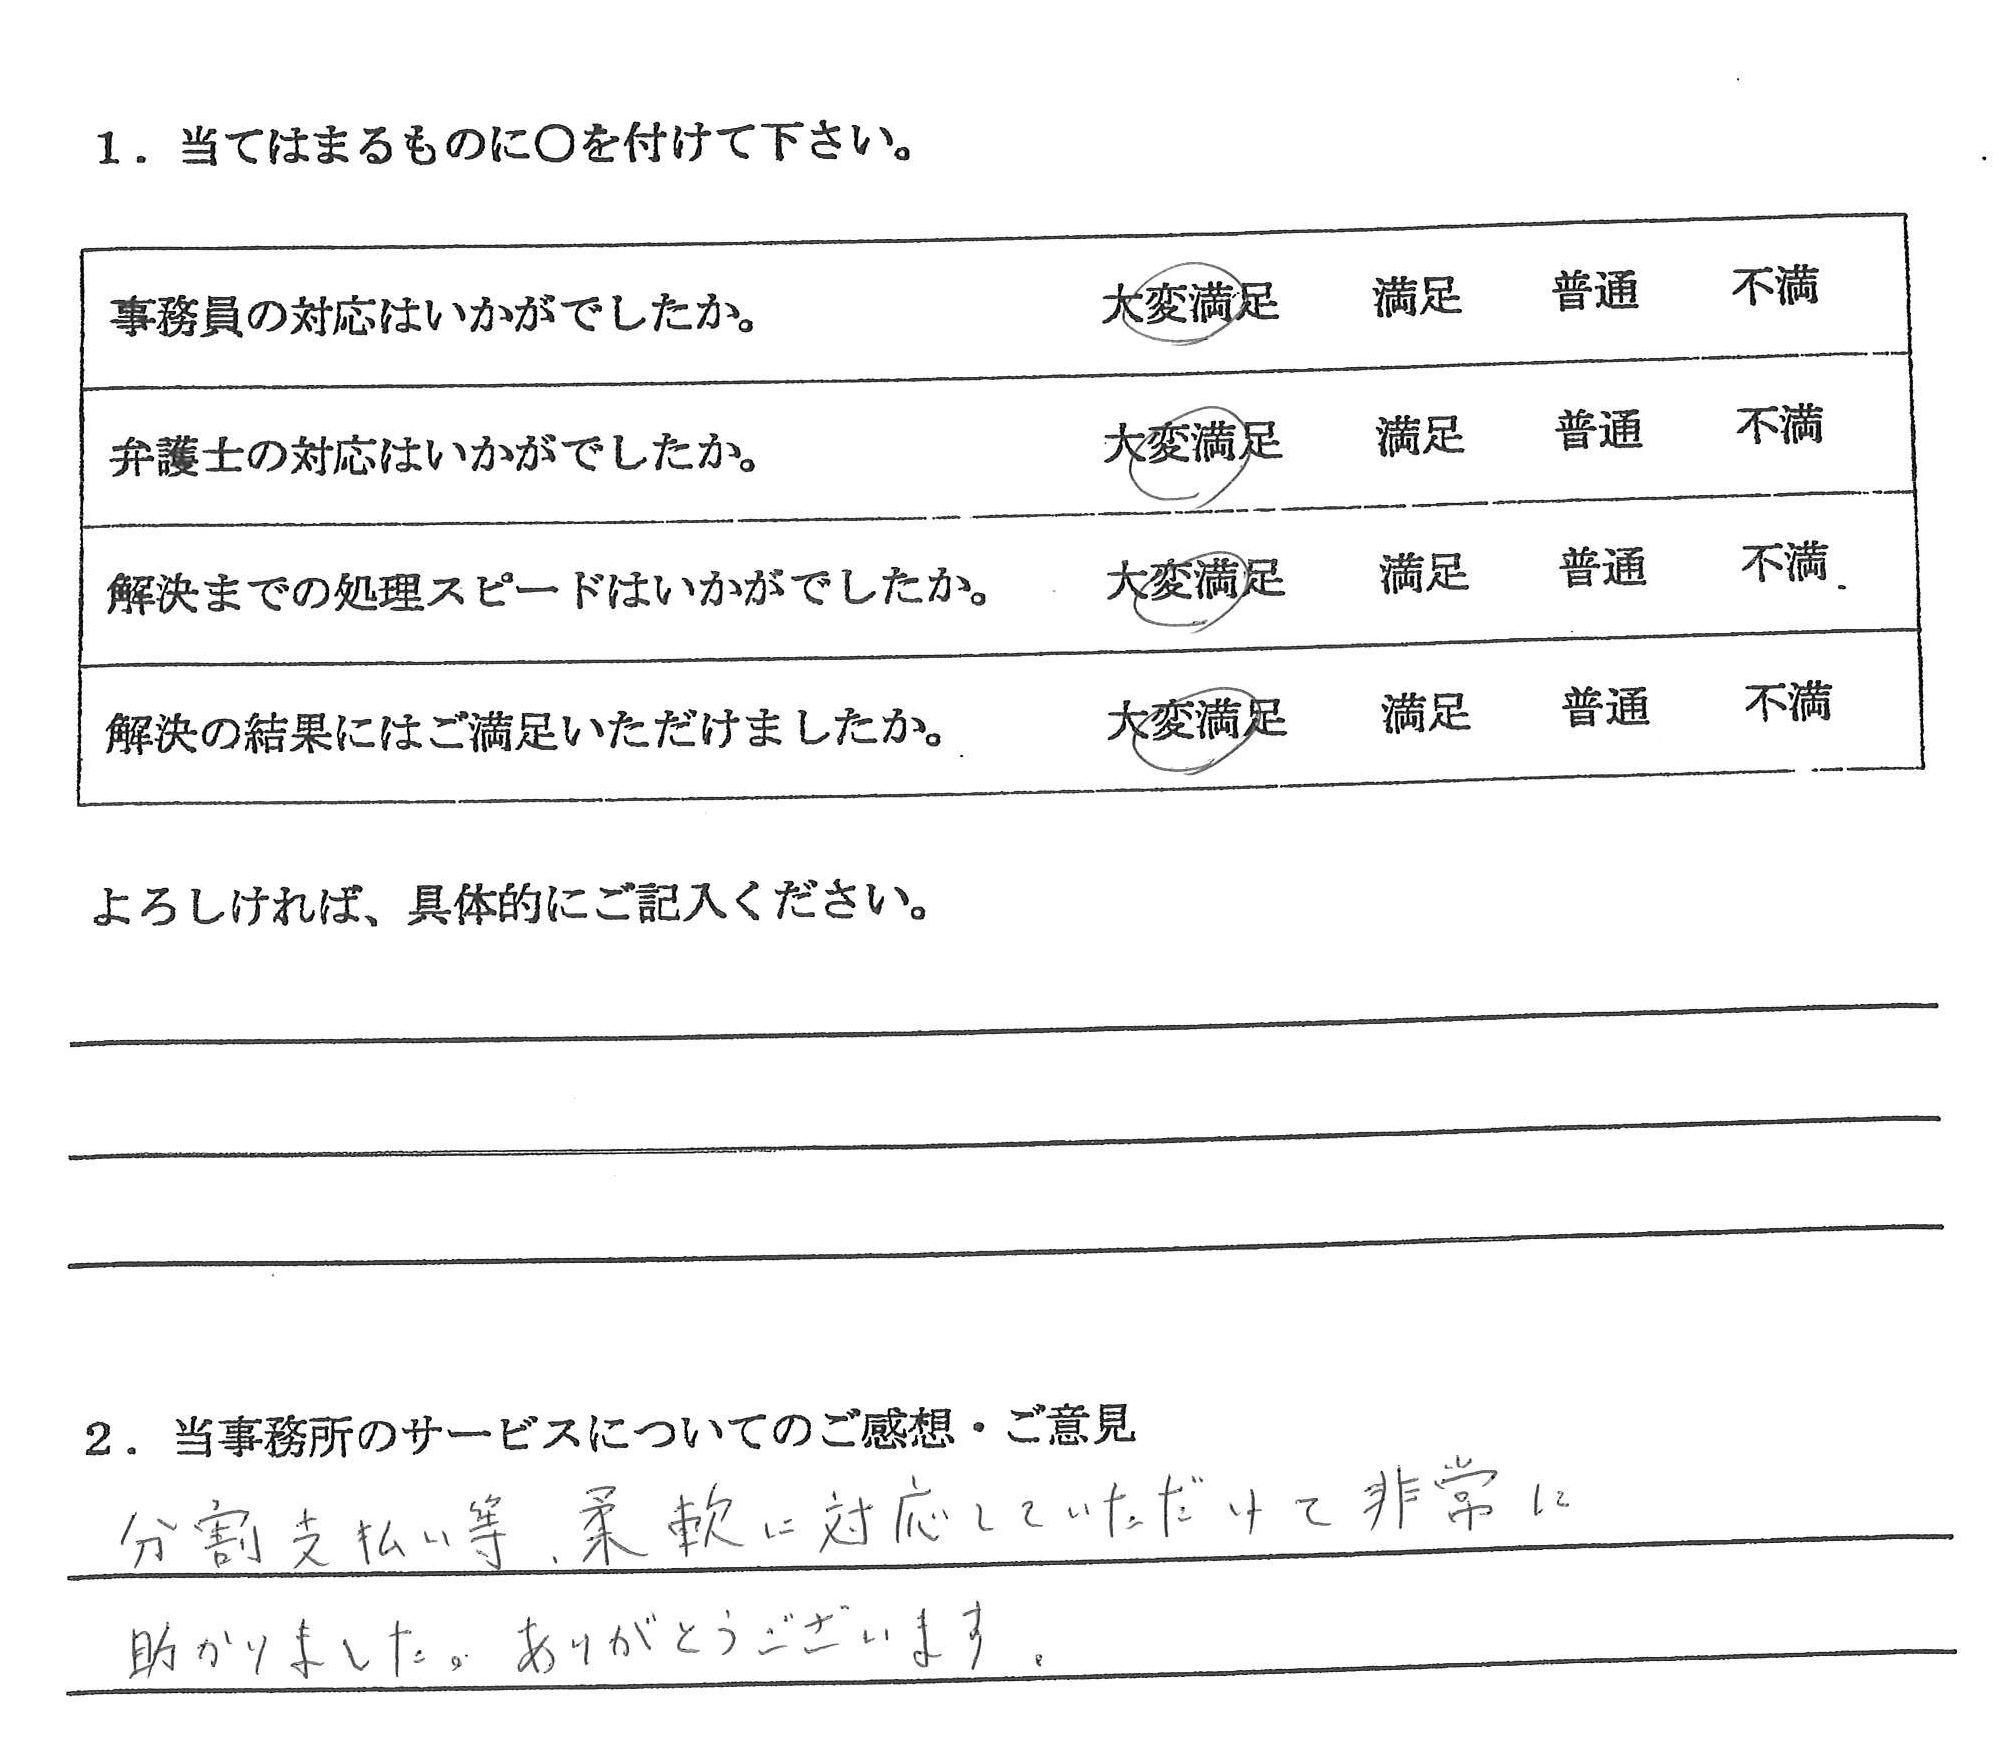 １．当てはまるものに〇を付けて下さい。
事務員の対応はいかがでしたか。 大変満足 満足 普通 不満
弁護士の対応はいかがでしたか。 大変満足 満足 普通 不満
解決までの処理スピードはいかがでしたか。 大変満足 満足 普通 不満
解決の結果にはご満足いただけましたか。 大変満足 満足 普通 不満
よろしければ、具体的にご記入ください。
２．当事務所のサービスについてのご感想・ご意見
分割支払い等、柔軟に対応していただけて非常に
助かりました。ありがとうございます。